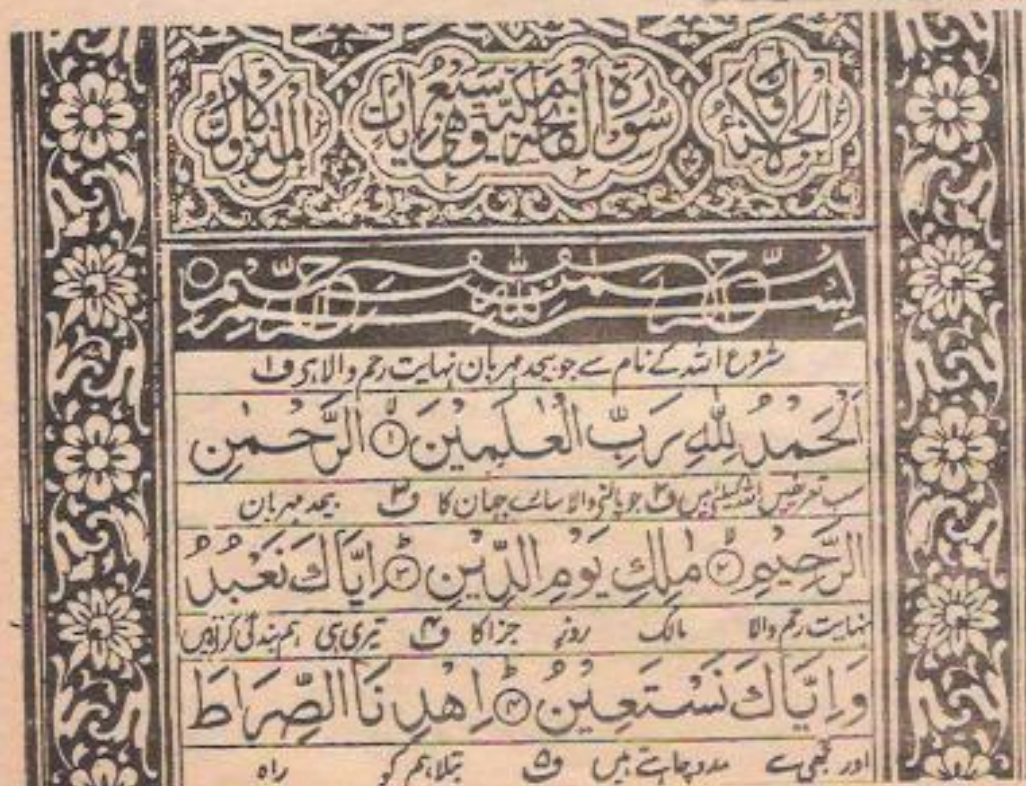 الجزء الاول
سورة الفاتحة مكية وهى سبع ايات
المنزل الاول
بسم الله الرحمن الرحيم
شروع اللہ کے نام سے جو بیحد مہربان نہایت رحم والا ہے ف۱
اَلْحَمْدُ لِلّٰهِ رَبِّ الْعٰلَمِيْنَ ۙ﴿۱﴾ الرَّحْمٰنِ
سب تعریفیں اللہ کیلئے ہیں ف۲ جو پالنے والا سارے جہان کا ف۳ بیحد مہربان
الرَّحِيْمِ ۙ﴿۲﴾ مٰلِكِ يَوْمِ الدِّيْنِ ؕ﴿۳﴾ اِيَّاكَ نَعْبُدُ
نہایت رحم والا مالک روز جزا کا ف۴ تیری ہی ہم بندگی کرتے ہیں
وَاِيَّاكَ نَسْتَعِيْنُ ؕ﴿۴﴾ اِهْدِنَا الصِّرَاطَ
اور تجھی سے مدد چاہتے ہیں ف۵ بتلا ہم کو راہ